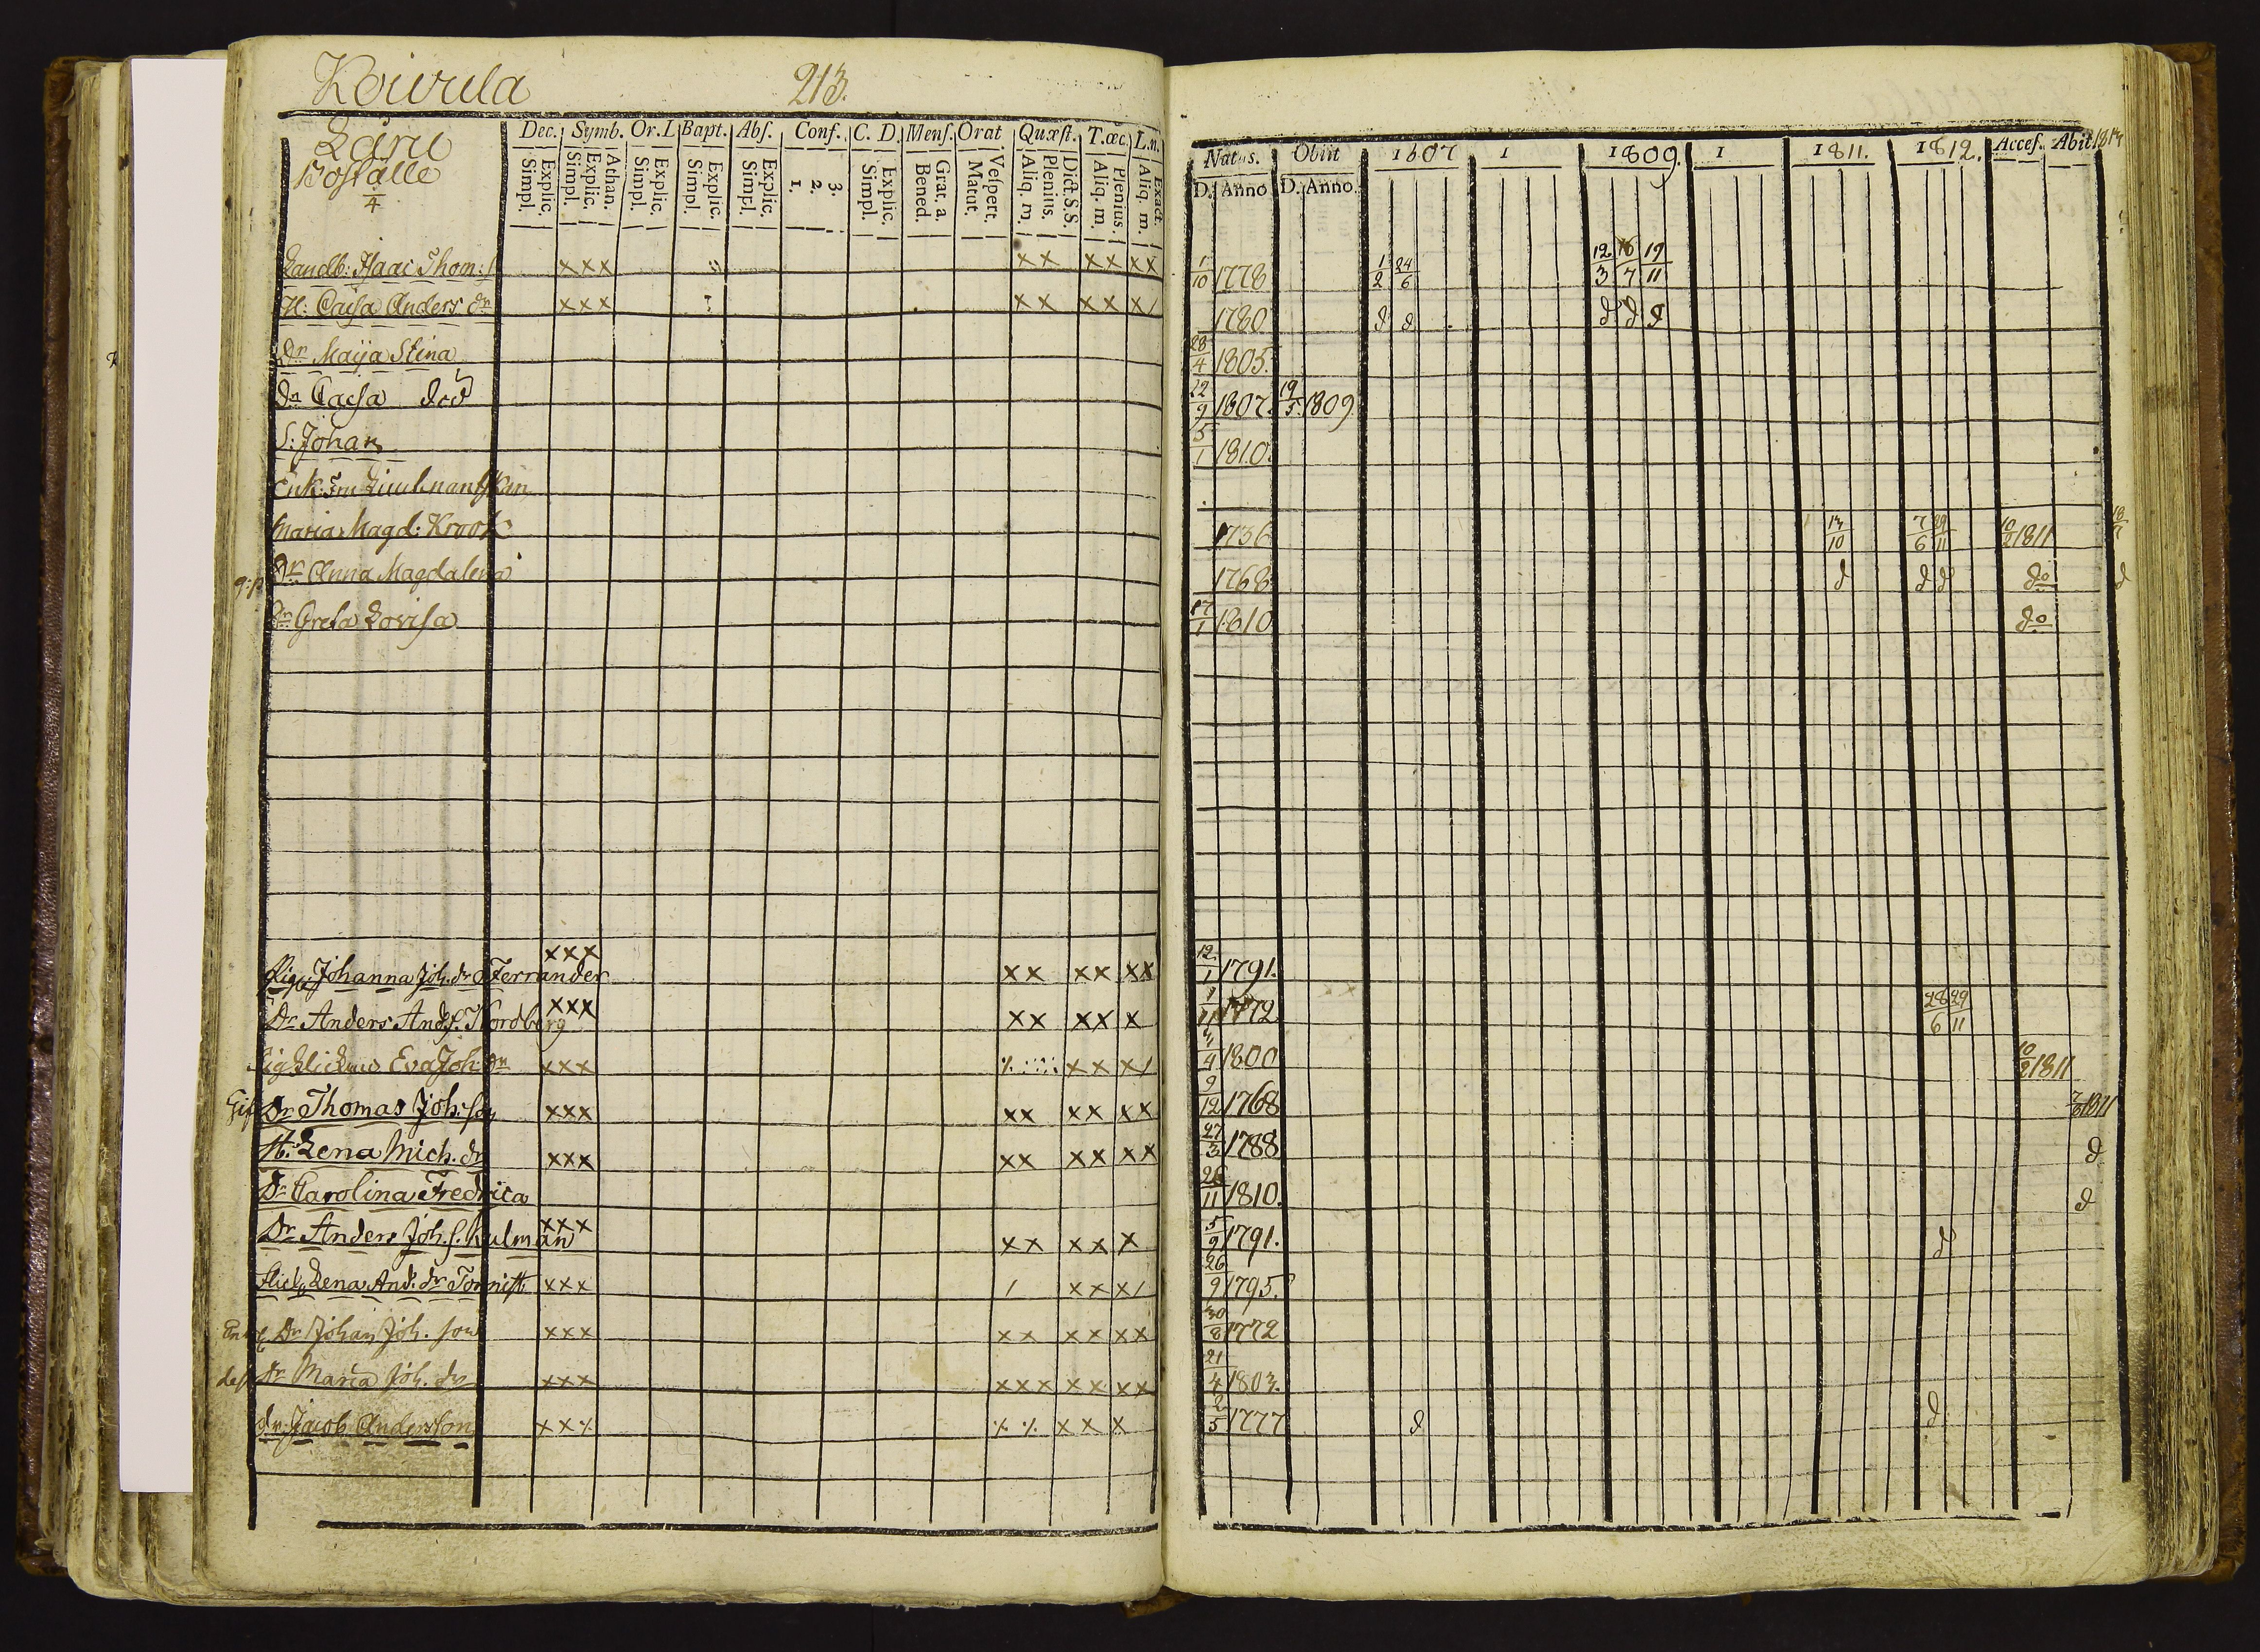 Koivula 213.
Laru
Boställe
4
Dec. Symb. Or. L Bapt. Abſ. Conf. C. D. Menſ. Orat Quæſt. T. œc. L. n.
Explic. Simpl. Athan. Explic. Simpl. Explic. Simpl. Explic. Simpl. Explic. Simpl. 3. 2. 1. Explic. Simpl. Grat. a. Bened. Veſpert. Matut. Dict. S. S. Plenius. Aliq. m. Plenius. Aliq. m. Exact. Aliq. m.
Natus. Obiit 1807 1 1809. 1 1811. 1812. Acceſ. Abit 1813
D. Anno D. Anno.
Landb: Isaac Thom: S xxx xx xx xx 1/10 1778 1/2 24/6 12/3 16/7 19/11
H: Caisa Anders dr xxx xx xx x/ 1780 d d d d d
Dr Maija Stina 28/4 1805.
Dr Caisa död 22/9 1807. 19/5 1809
S: Johan 5/1 1810.
Enk: Fru
Maria Magd: Krook 1736 13/10 7/6 29/11 10/2 1811 18/7
Dr Anna Magdalena 1768 d d d do d
Dr Greta Lovisa 17/1 1810 do
Pig. Johanna Joh. dr Ferrander xxx xx xx xx 12/1 1791.
Dr Anders And. S. Nordberg xxx xx xx x 1/11 1772 28/6 29/11
Eva Joh: dr xxx xx x/ 4/4 1800 10/2 1811
Gift Dr Thomas Joh: son xxx xx xx xx 9/12 1768 7/8 1811
H: Lena Mich. dr xxx xx xx xx 27/3 1788 d
Dr Carolina Fredrica 26/11 1810. d
Dr Anders Joh. S. Kulman xxx xx xx x 5/9 1791. d
Flick. Lena And. dr xxx / xx x/ 26/9 1795.
Enkl. Dr Johan Joh. son xxx xx xx xx 30/8 1772
des Dr Maria Joh. dr xxx xxx xx xx 21/4 1803.
dr. Jacob Andersson xx% % % xx x 2/5 1777 d d